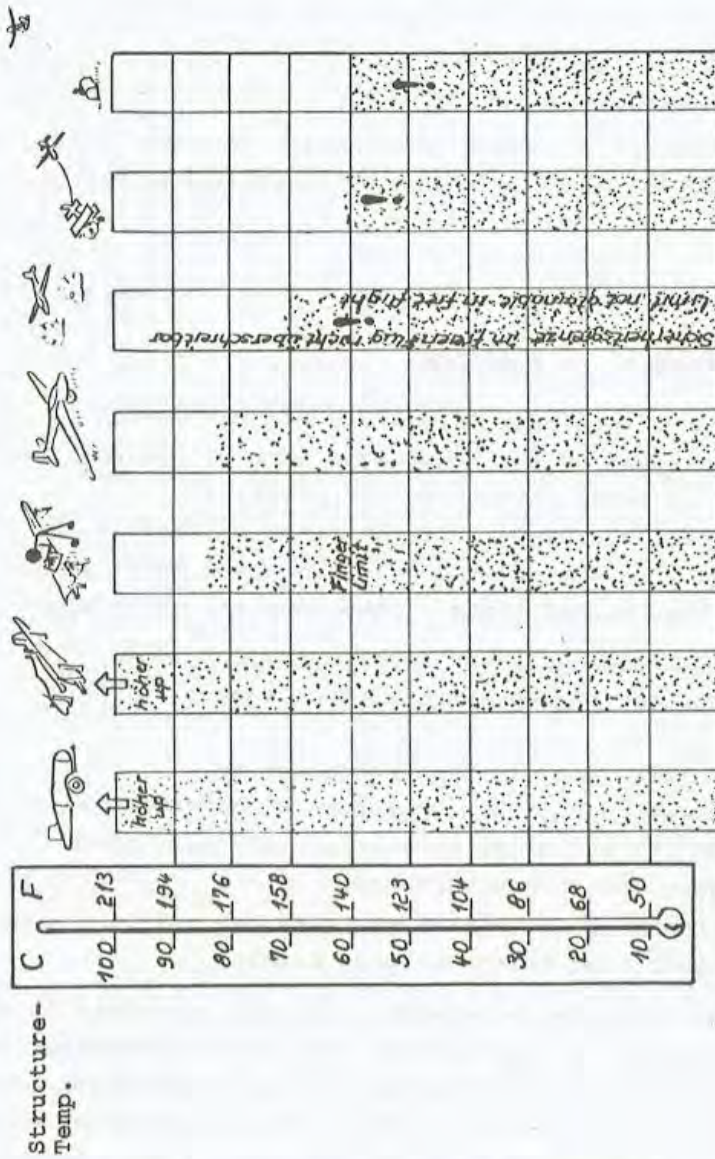 Structure-
Temp.
C F
100 213
90 194
80 176
70 158
60 140
50 123
40 104
30 86
20 68
10 50
höher
up
höher
up
Finger
Limit
Sicherheitsgrenze im freien Flug nicht überschreitbar
Limit not attainable in free flight